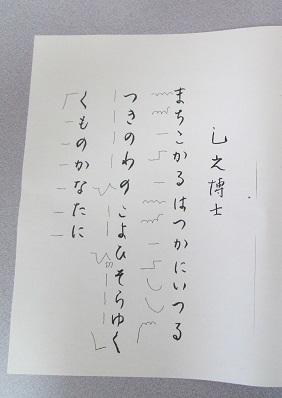 乙之博士
まちこかるはつかにいつる
つきのわのこよひそらゆく
くものかなたに